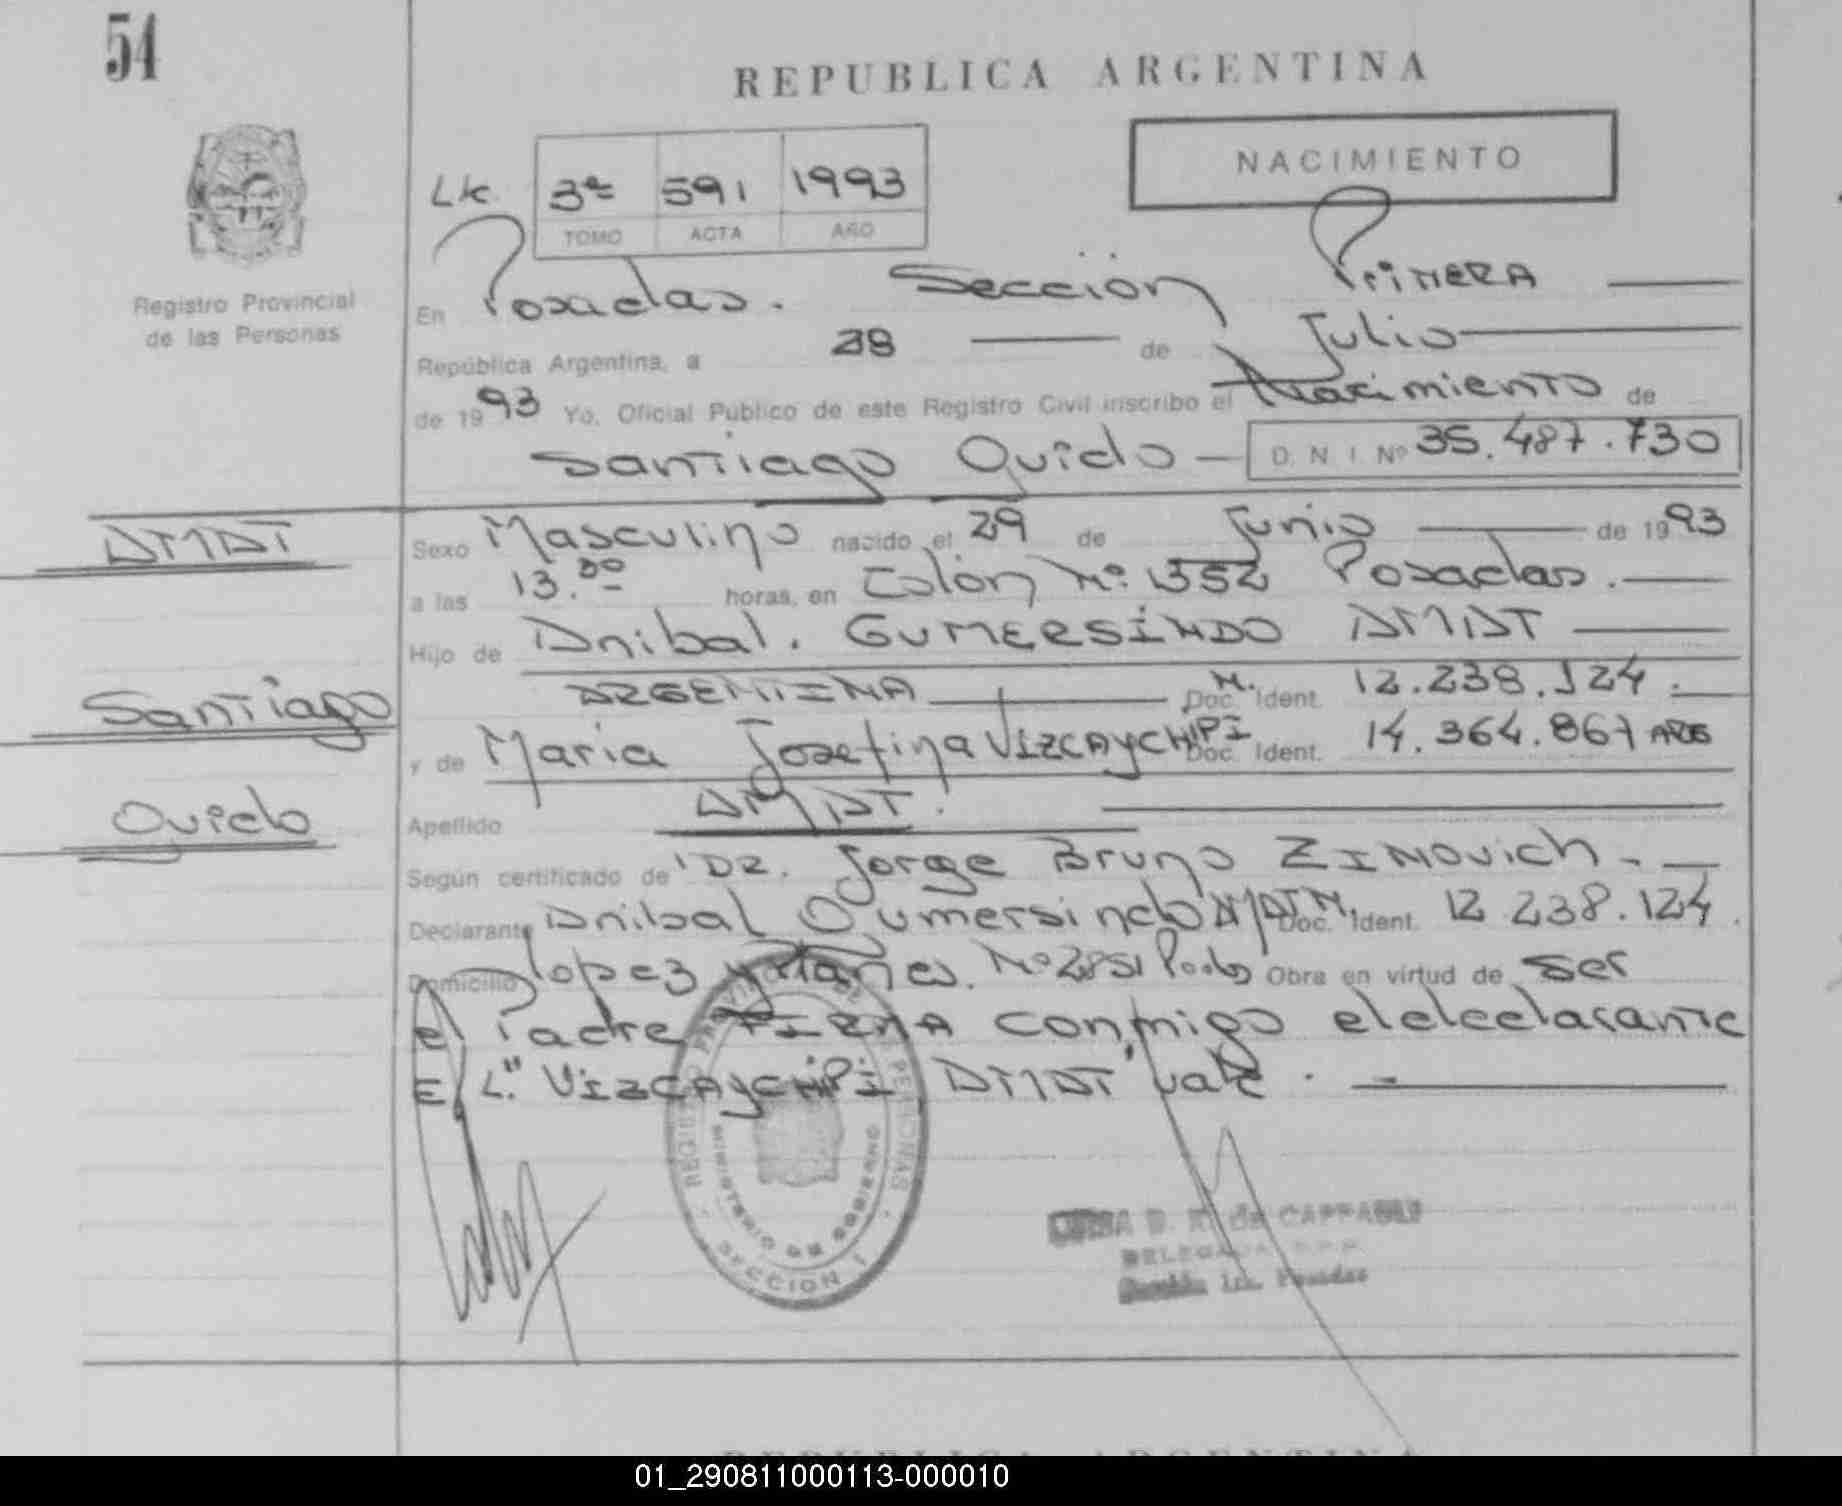 54
REPUBLICA ARGENTINA
NACIMIENTO
3ª 591 1993
TOMO ACTA AÑO
Registro Provincial
de las Personas
En Posadas. Sección Primera
República Argentina, a 28 de Julio
de 1993 Yo, Oficial Público de este Registro Civil inscribo el Nacimiento de
Santiago Guido D. N. I. Nº 35.487.730
AMAT
Sexo Masculino nacido el 29 de Junio de 1993
a las 13.30 horas, en Colón Nº. 1352 Posadas.
Hijo de Anibal. GUMERSINDO AMAT
ARGENTINA M. Doc. Ident. 12.238.124.
Santiago
y de Maria Josefina VIZCAYCHIPI Doc. Ident. 14.364.867 ARG
Guido
Apellido AMAT.
Según certificado de DR. Jorge Bruno ZINOVICH.
Declarante Anibal Gumersindo AMAT M. Doc. Ident. 12.238.124.
Domicilio Lopez y Planes. Nº 2851 Pdas Obra en virtud de ser
el Padre FIRMA conmigo el declarante
E/L." VIZCAYCHIPI AMAT" vale.
REGISTRO PROVINCIAL DE LAS PERSONAS
MINISTERIO DE GOBIERNO
SECCION 1
D. R. de CAPPA
DELEGADA
Sección 1ra. Posadas
REPUBLICA ARGENTINA
01_290811000113-000010